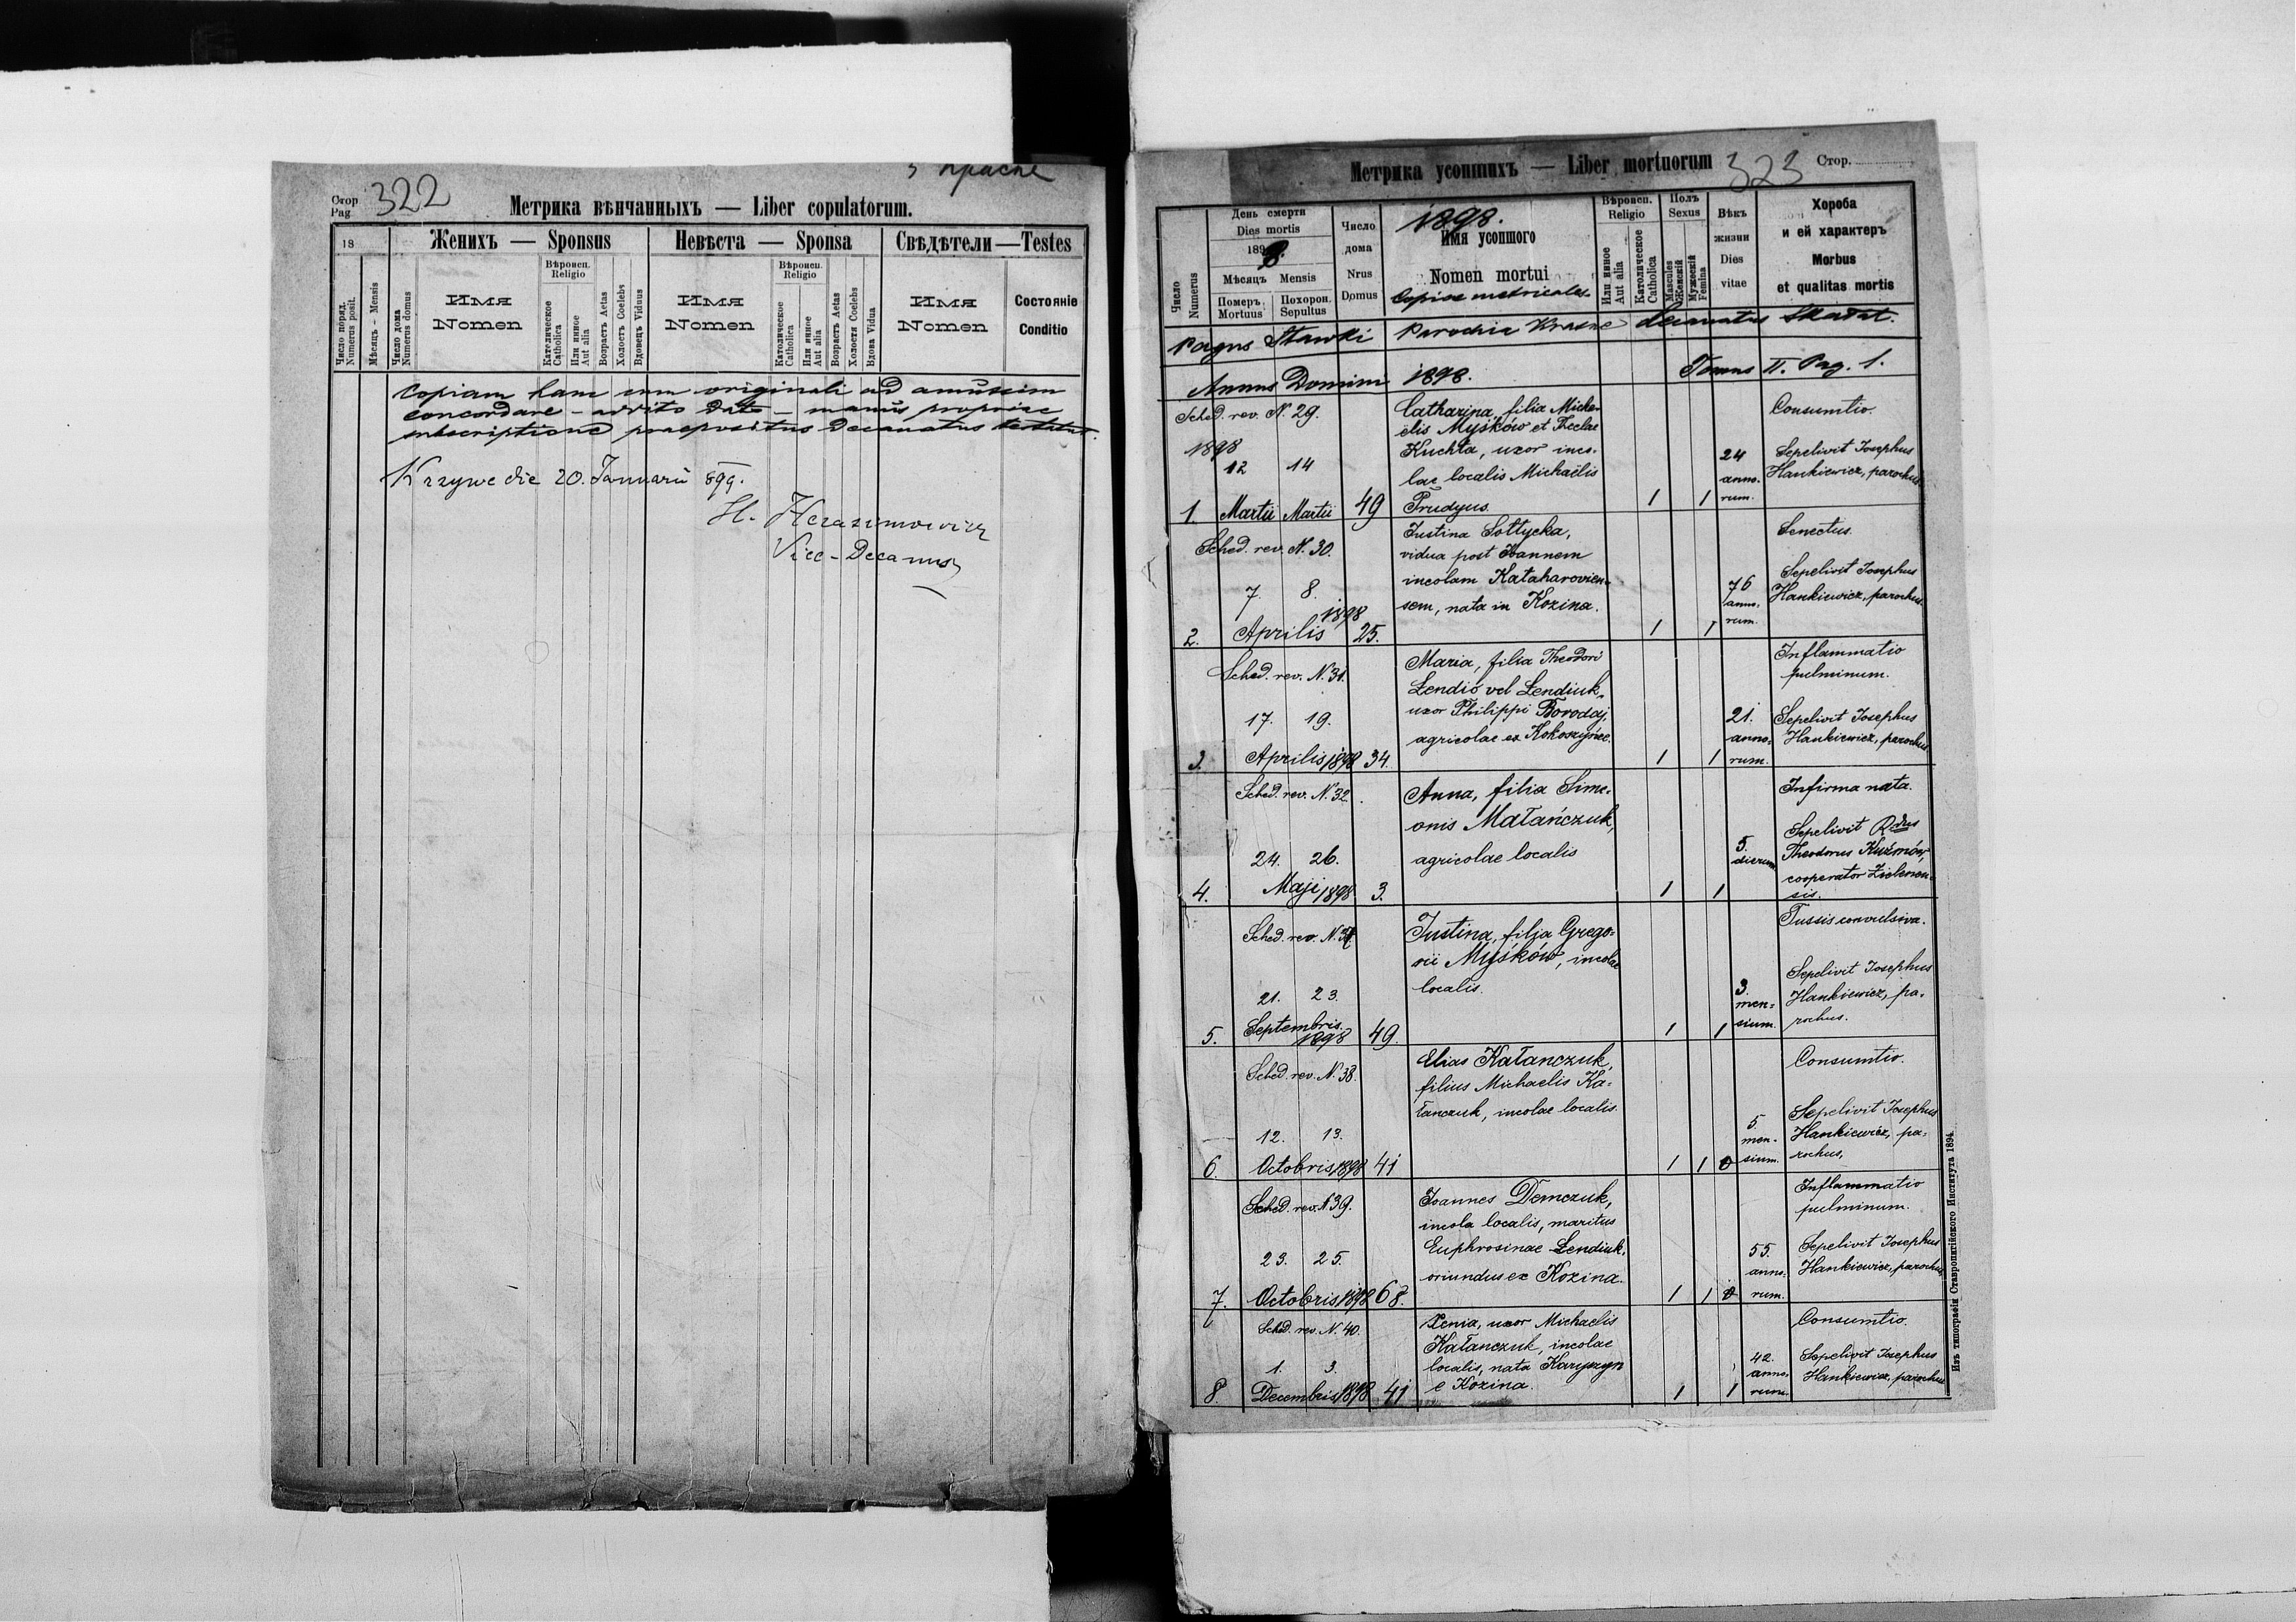 з Красне
Стор
Pag
322
Метрика вѣнчанныхъ — Liber copulatorum.
18
Женихъ — Sponsus
Невѣста — Sponsa
Свѣдѣтели — Testes
Число поряд.
Numerus posit.
Мѣсяцъ - Mensis
Число дома
Numerus domus
Имя
Nomen
Вѣроисп.
Religio
Католическое
Catholica
Или инное
Aut alia
Возрастъ Aetas
Холостъ Coelebs
Вдовецъ Viduus
Имя
Nomen
Вѣроисп.
Religio
Католическое
Catholica
Или инное
Aut alia
Возрастъ Aetas
Холостя Coelebs
Вдова Vidua
Имя
Nomen
Состояніе
Conditio
Copiam hanc cum originali ad amussim
concordare - addito dato - manus propriae
subscriptione praepositus Decanatus testatur.
Krzywe die 20. Januarii 899.
H. Herasimowicz
Vice-Decanus
Метрика усопшихъ — Liber mortuorum
323
Стор.
Число
Numerus
День смерти
Dies mortis
1898.
Мѣсяцъ Mensis
Померъ
Mortuus
Похорон.
Sepultus
Число
дома
Nrus
Domus
1898.
Имя усопшого
Nomen mortui
Copiae metricales
Вѣроисп.
Religio
Или инное
Aut alia
Католическое
Catholica
Полъ
Sexus
Masculus
Женскій
Мужескій
Femina
Вѣкъ
жизни
Dies
vitae
Хороба
и ей характеръ
Morbus
et qualitas mortis
Pagus Stawki Parochia Krasne decanatus Skałat.
Annus Domini 1898. Tomus II. Pag. 1.
Sched. rev. N. 29.
1898
12 14
1. Martii Martii 49
Catharina, filia Micha-
ëlis Myśków et Theclae
Kuchta, uxor inco-
lae localis Michaëlis
Prudyus.
1 1
24
anno-
rum.
Consumtio.
Sepelivit Josephus
Hankiewicz, parochus
Sched. rev. N. 30.
7. 8.
1898
2. Aprilis 25.
Justina Sołtycka,
vidua post Ioannem
incolam Kataharovien-
sem, nata in Kozina.
1 1
76
anno-
rum.
Senectus.
Sepelivit Josephus
Hankiewicz, parochus.
Sched. rev. N. 31.
17. 19.
3. Aprilis 1898 34.
Maria, filia Theodori
Lendió vel Lendiuk,
uxor Philippi Borodaj,
agricolae ex Kokoszyńce.
1 1
21.
anno-
rum.
Inflammatio
pulminum.
Sepelivit Josephus
Hankiewicz, parochus
Sched. rev. N. 32.
24. 26.
4. Maji 1898 3.
Anna, filia Sime-
onis Małańczuk,
agricolae localis
1 1
5.
dierum
Infirma nata.
Sepelivit Rdus
Theodorus Kuźmów,
cooperator Zielenen-
sis.
Sched. rev. N.
21. 23.
5. Septembris 1898 49.
Justina, filja Grego-
rii Myśków, incolae
localis.
1 1
3.
men-
sium.
Tussis convulsiva.
Sepelivit Josephus
Hankiewicz, pa-
rochus.
Sched. rev. N. 38.
12. 13.
6. Octobris 1898 41
Elias Kałanczuk,
filius Michaelis Ka-
łanczuk, incolae localis.
1 1
5.
men-
sium.
Consumtio.
Sepelivit Josephus
Hankiewicz, pa-
rochus,
Sched. rev. N 39.
23. 25.
7. Octobris 1898 68.
Ioannes Demczuk,
incola localis, maritus
Euphrosinae Lendiuk,
oriundus ex Kozina.
1 1
55.
anno-
rum.
Inflammatio
pulminum.
Sepelivit Josephus
Hankiewicz, parochus
Sched. rev. N. 40.
1. 3.
8. Decembris 1898 41
Xenia, uxor Michaelis
Kałanczuk, incolae
localis, nata Karyszyn
e Kozina.
1 1
42.
anno-
rum.
Consumtio.
Sepelivit Josephus
Hankiewicz, parochus
Изъ типографіи Ставропигійского Института 1894.